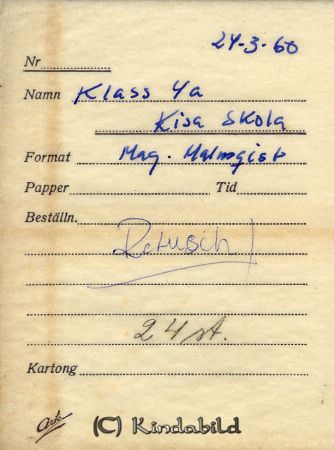 24-3-60
Nr
Namn Klass 4a
Kisa Skola
Format Mag. Malmqist
Papper Tid
Beställn.
Retusch
24 st.
Kartong
(C) Kindabild